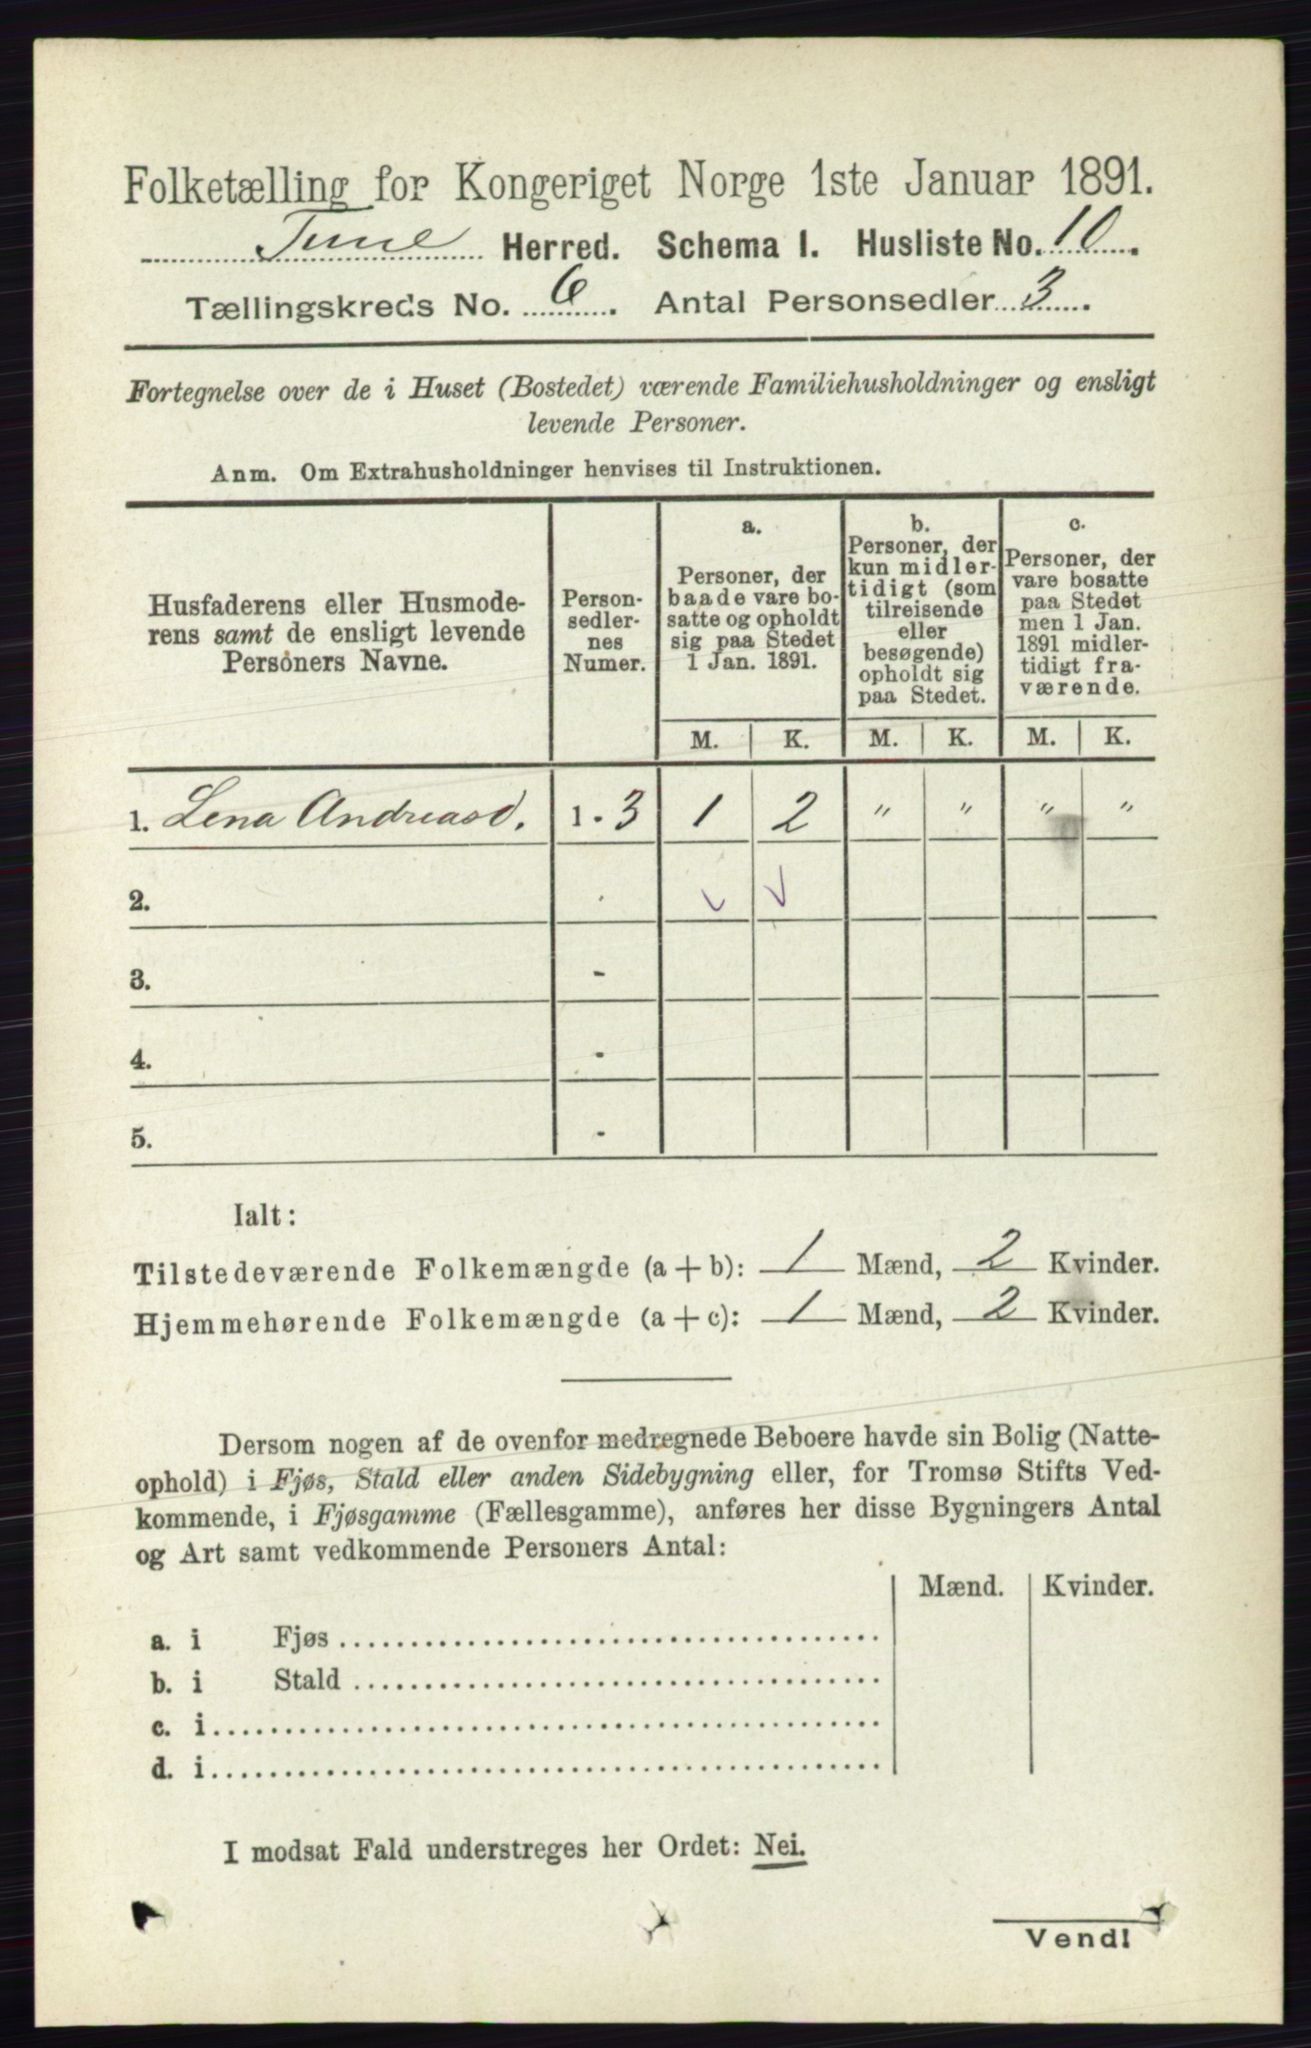 Folketælling for Kongeriget Norge 1ste Januar 1891.
Tune Herred. Schema I. Husliste No. 10.
Tællingskreds No. 6. Antal Personsedler 3.
Fortegnelse over de i Huset (Bostedet) værende Familiehusholdninger og ensligt
levende Personer.
Anm. Om Extrahusholdninger henvises til Instruktionen.
Husfaderens eller Husmode-
rens samt de ensligt levende
Personers Navne.
Person-
sedler-
nes
Numer.
a.
Personer, der
baade vare bo-
satte og opholdt
sig paa Stedet
1 Jan. 1891.
b.
Personer, der
kun midler-
tidigt (som
tilreisende
eller
besøgende)
opholdt sig
paa Stedet.
c.
Personer, der
vare bosatte
paa Stedet
men 1 Jan.
1891 midler-
tidigt fra-
værende.
M. K. M. K. M. K.
1. Lena Andreasd. 1 - 3 1 2 " " " "
2.
3. -
4. -
5. -
Ialt:
Tilstedeværende Folkemængde (a + b): 1 Mænd, 2 Kvinder.
Hjemmehørende Folkemængde (a + c): 1 Mænd, 2 Kvinder.
Dersom nogen af de ovenfor medregnede Beboere havde sin Bolig (Natte-
ophold) i Fjøs, Stald eller anden Sidebygning eller, for Tromsø Stifts Ved-
kommende, i Fjøsgamme (Fællesgamme), anføres her disse Bygningers Antal
og Art samt vedkommende Personers Antal:
Mænd. Kvinder.
a. i Fjøs
b. i Stald
c. i
d. i
I modsat Fald understreges her Ordet: Nei.
Vend!